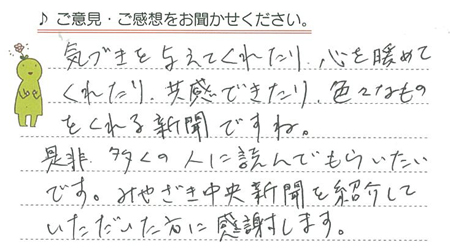 ♪ ご意見・ご感想をお聞かせください。
気づきを与えてくれたり、心を暖めて
くれたり、共感できたり、色々なもの
をくれる新聞ですね。
是非、多くの人に読んでもらいたい
です。みやざき中央新聞を紹介して
いただいた方に感謝します。